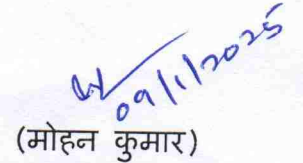 09/1/2025
(मोहन कुमार)